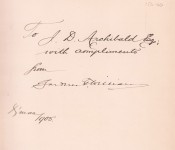 To J. D. Archibald Esq;
with compliments
from
1905